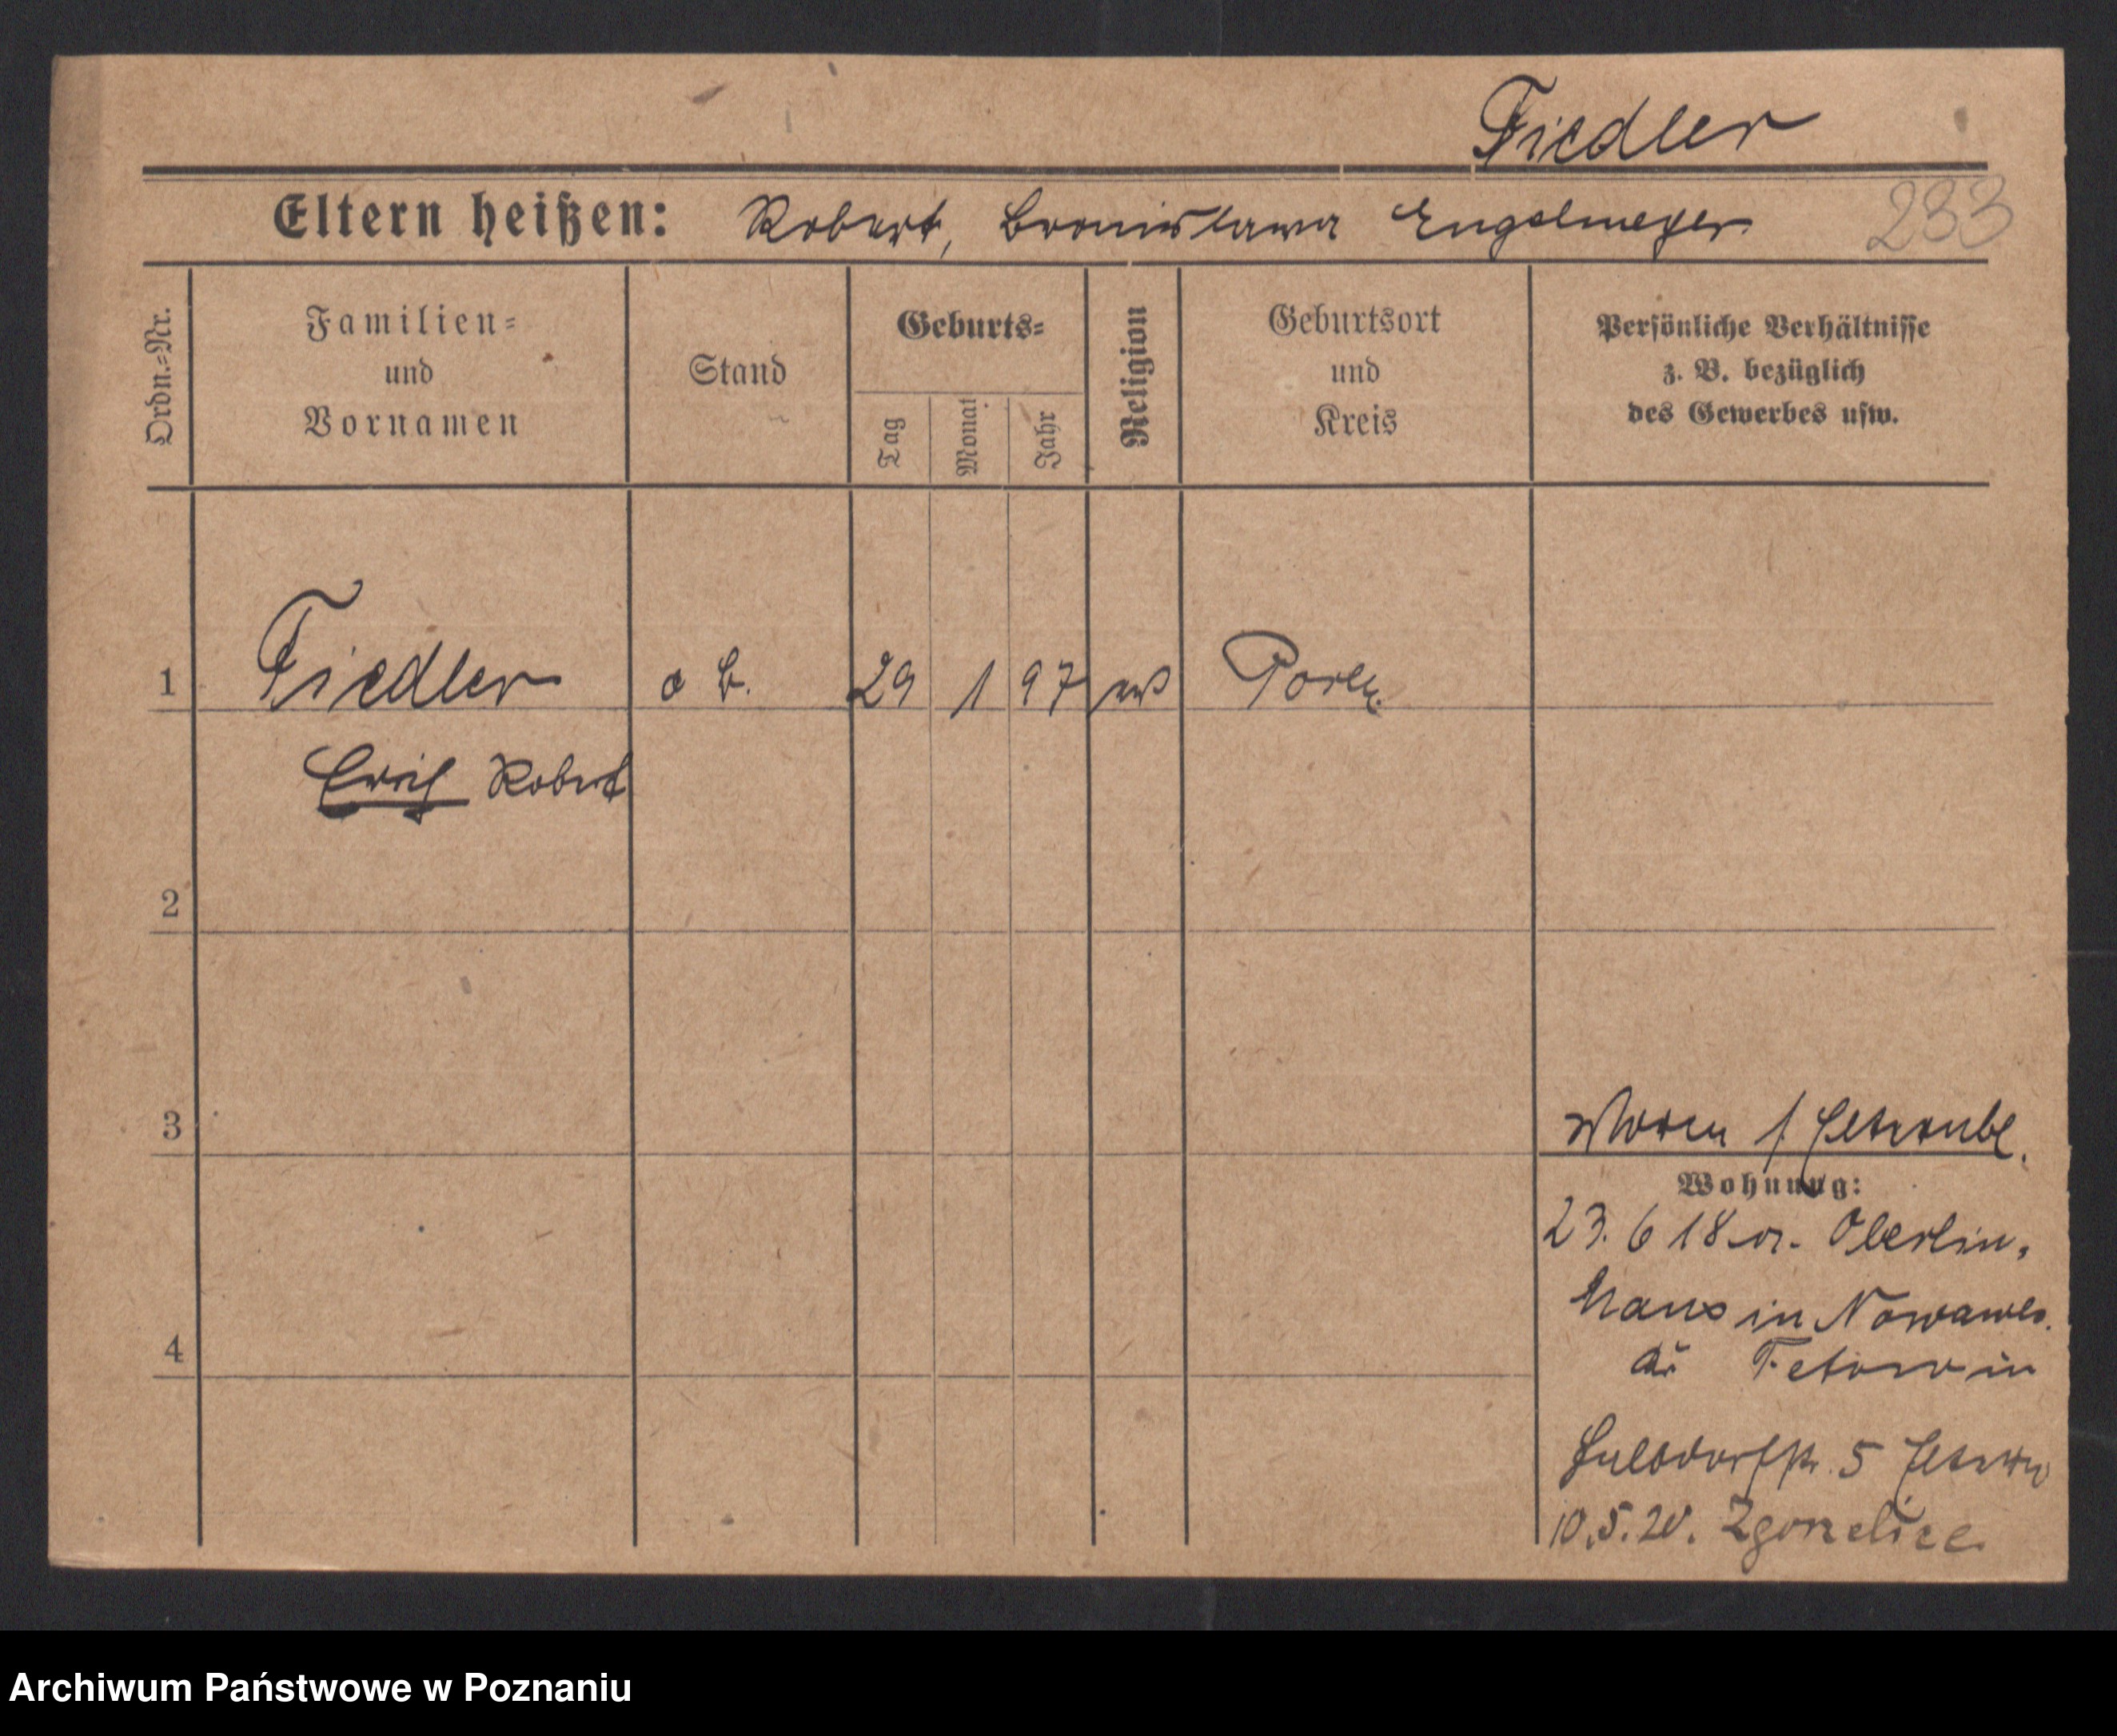 Fiedler
Eltern heißen: Robert, Bronislawa Engelmeyer
233
Ordn.=Nr.
Familien=
und
Vornamen
Stand
Geburts=
Tag
Monat
Jahr
Religion
Geburtsort
und
Kreis
Persönliche Verhältnisse
z. B. bezüglich
des Gewerbes usw.
1 Fiedler o B. 29 1 97 Posen
Erich Robert
2
3
4
Wohnung:
23. 6 18 Oberlin,
haus in Nowawes.
5
10.5.20. Zgorzelice
Archiwum Państwowe w Poznaniu